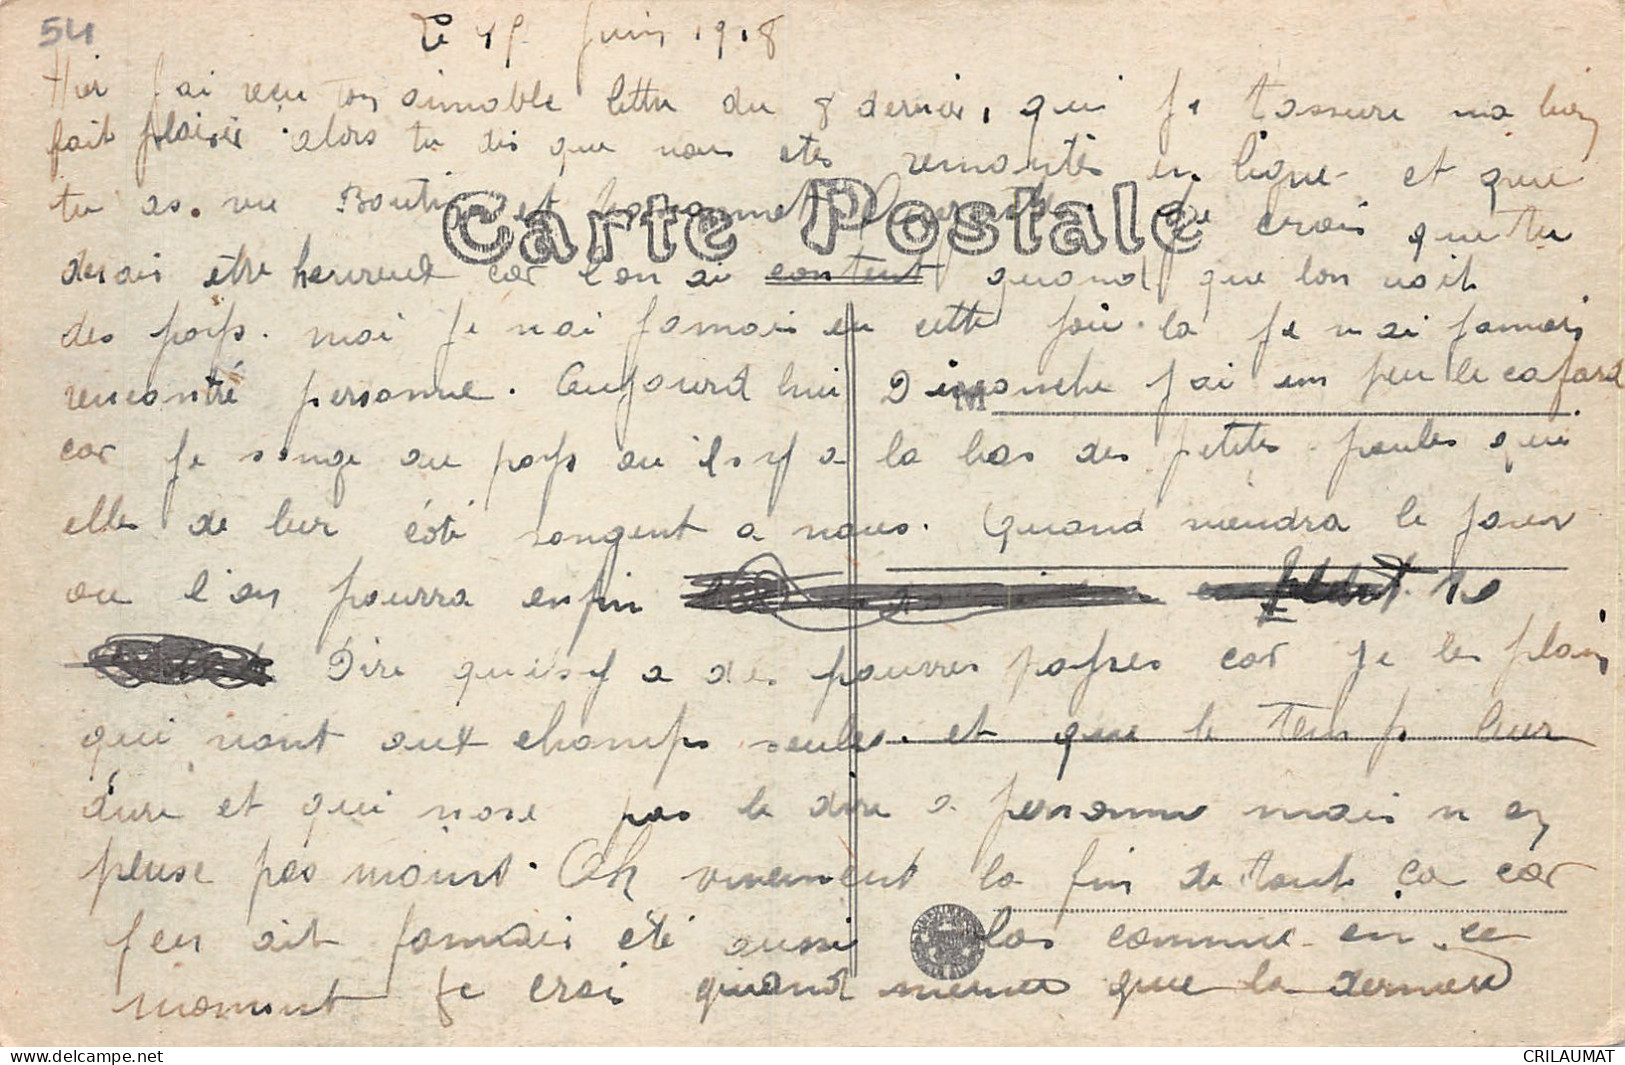 54
Le Juin 1918
Hier j'ai reçu ton aimable lettre du 8 dernier, qui je t'assure ma bien
fait plaisir alors tu dis que vous etes remontés en ligne et que
tu as vu Boutin et je crois que tu
Carte Postale
devais etre heureux car l'on ai content quand que lon voit
des pays. moi je n ai jamais eu cette joie. la je n ai jamais
rencontré personne. Aujourd hui Dimanche j ai un peu le cafard
M
car je songe au pays ou il s y a la bas des petites poules qui
elles de leur coté songent a nous. Quand viendra le jour
ou l'on pourra enfin
Dire qu'ils y a des pauvres payses car je les plains
qui vont aux champs seules. et que le temps leur
dure et qui nose pas le dire a personne mais n en
pense pas moins. Oh vivement la fin de tout ca car
j en ait jamais été aussi las comme en ce
moment je croi quand meme que la derniere
www.delcampe.net
CRILAUMAT